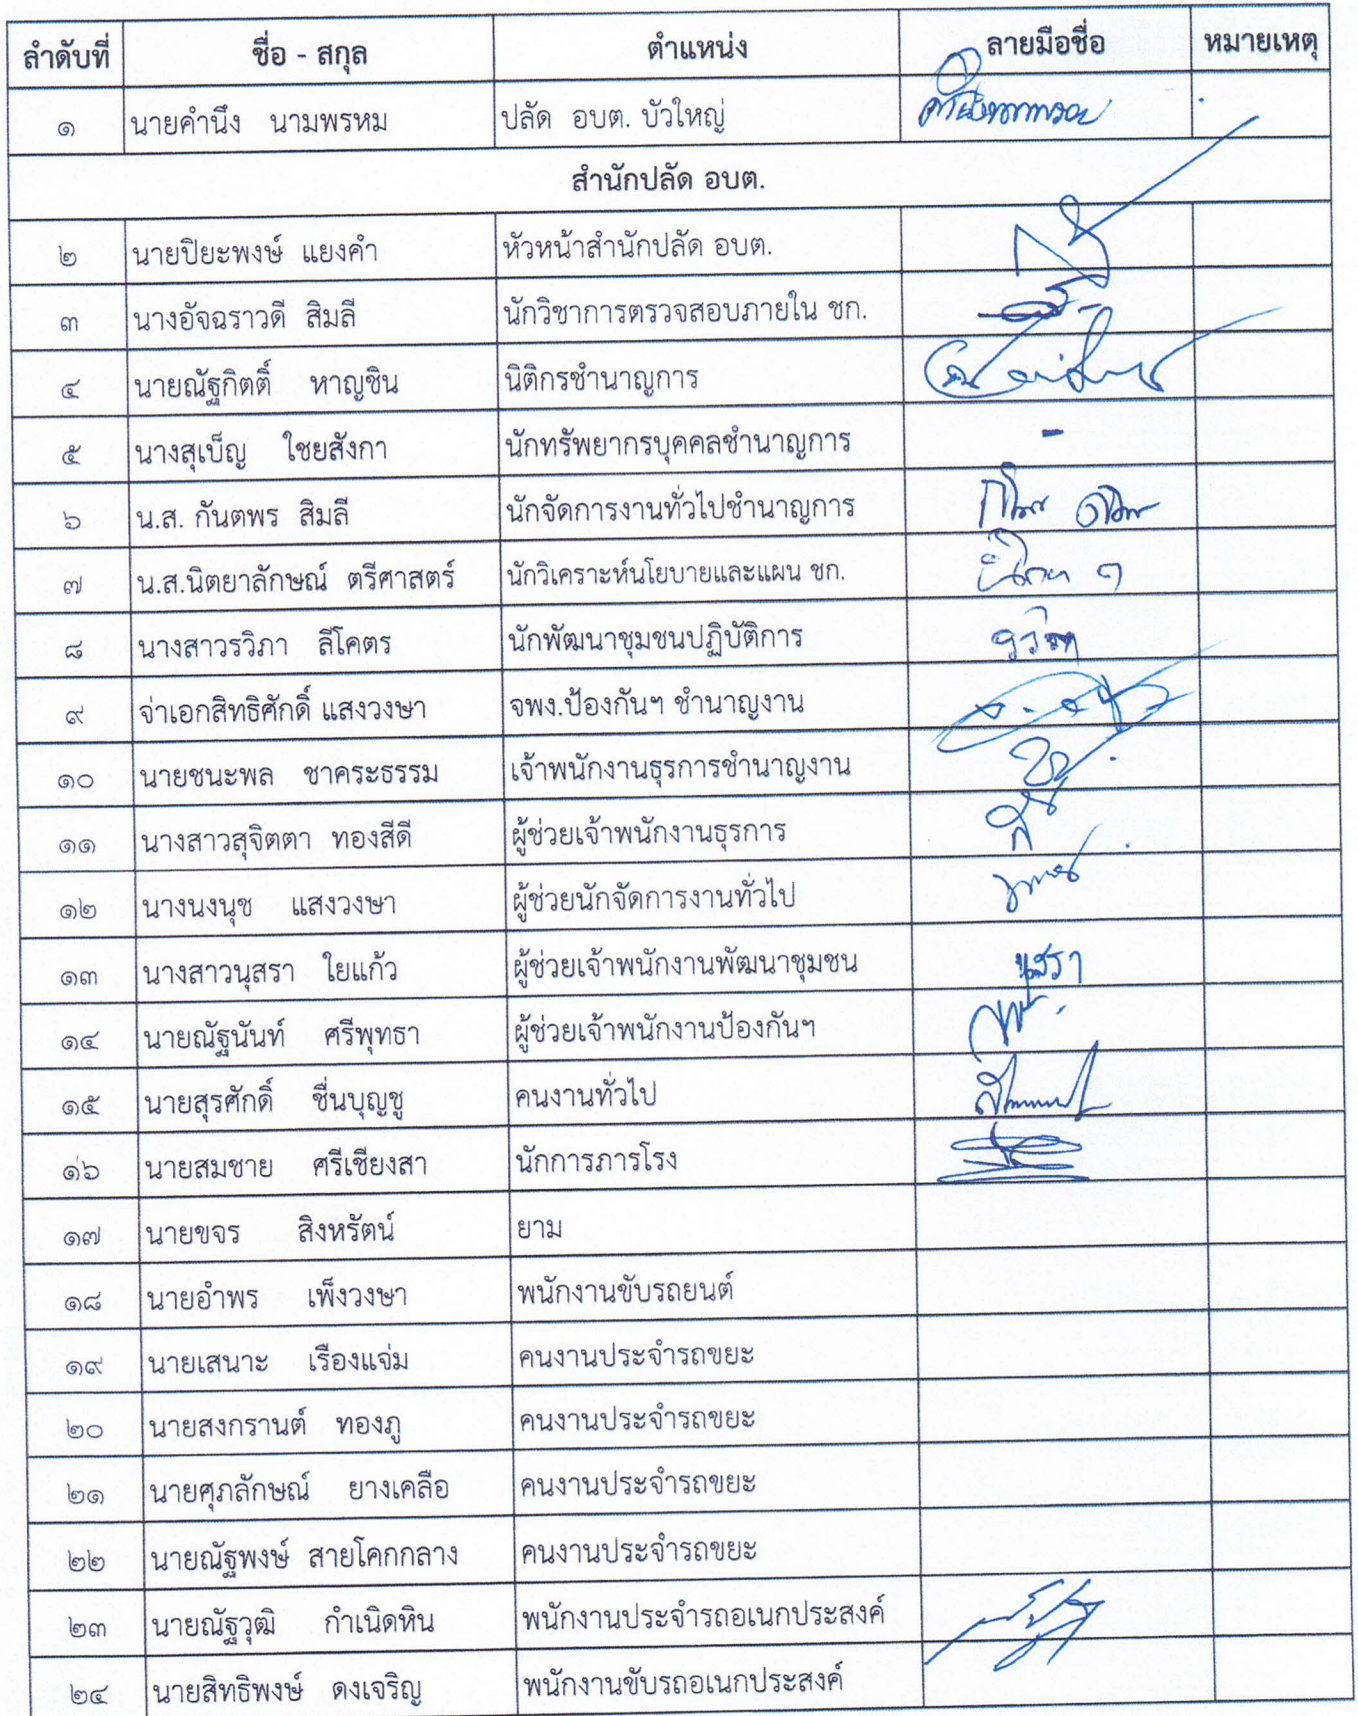 ลำดับที่ ชื่อ - สกุล ตำแหน่ง ลายมือชื่อ หมายเหตุ
๑ นายคำนึง นามพรหม ปลัด อบต. บัวใหญ่
สำนักปลัด อบต.
๒ นายปิยะพงษ์ แยงคำ หัวหน้าสำนักปลัด อบต.
๓ นางอัจฉราวดี สิมลี นักวิชาการตรวจสอบภายใน ชก.
๔ นายณัฐกิตติ์ หาญชิน นิติกรชำนาญการ
๕ นางสุเบ็ญ ใชยสังกา นักทรัพยากรบุคคลชำนาญการ -
๖ น.ส. กันตพร สิมลี นักจัดการงานทั่วไปชำนาญการ
๗ น.ส.นิตยาลักษณ์ ตรีศาสตร์ นักวิเคราะห์นโยบายและแผน ชก.
๘ นางสาวรวิภา ลีโคตร นักพัฒนาชุมชนปฏิบัติการ
๙ จ่าเอกสิทธิศักดิ์ แสงวงษา จพง.ป้องกันฯ ชำนาญงาน
๑๐ นายชนะพล ชาคระธรรม เจ้าพนักงานธุรการชำนาญงาน
๑๑ นางสาวสุจิตตา ทองสีดี ผู้ช่วยเจ้าพนักงานธุรการ
๑๒ นางนงนุช แสงวงษา ผู้ช่วยนักจัดการงานทั่วไป
๑๓ นางสาวนุสรา ใยแก้ว ผู้ช่วยเจ้าพนักงานพัฒนาชุมชน นุสรา
๑๔ นายณัฐนันท์ ศรีพุทธา ผู้ช่วยเจ้าพนักงานป้องกันฯ
๑๕ นายสุรศักดิ์ ชื่นบุญชู คนงานทั่วไป
๑๖ นายสมชาย ศรีเชียงสา นักการภารโรง
๑๗ นายขจร สิงหรัตน์ ยาม
๑๘ นายอำพร เพ็งวงษา พนักงานขับรถยนต์
๑๙ นายเสนาะ เรืองแจ่ม คนงานประจำรถขยะ
๒๐ นายสงกรานต์ ทองภู คนงานประจำรถขยะ
๒๑ นายศุภลักษณ์ ยางเคลือ คนงานประจำรถขยะ
๒๒ นายณัฐพงษ์ สายโคกกลาง คนงานประจำรถขยะ
๒๓ นายณัฐวุฒิ กำเนิดหิน พนักงานประจำรถอเนกประสงค์
๒๔ นายสิทธิพงษ์ ดงเจริญ พนักงานขับรถอเนกประสงค์